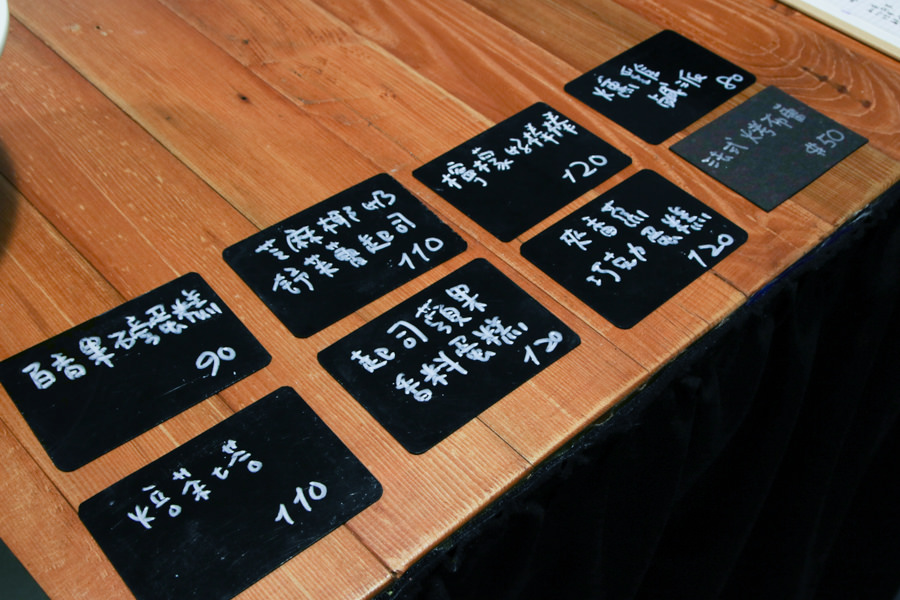 燻雞
鹹派
80
法式烤布蕾
$50
檸檬好棒棒
120
夾香蕉
巧克力蛋糕
120
芝麻椰奶
舒芙蕾起司
110
起司蘋果
香料蛋糕
120
百香果磅蛋糕
90
焙茶塔
110